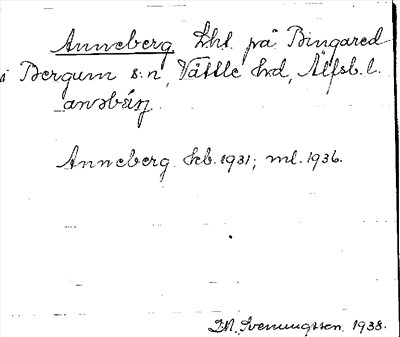 Anneberg. Lht. på Bingared
i Bergum s:n, Vättle hrd, Älfsb. l.
Anneberg. kb. 1931; ml. 1936.
I.M. Svenungsson 1938.